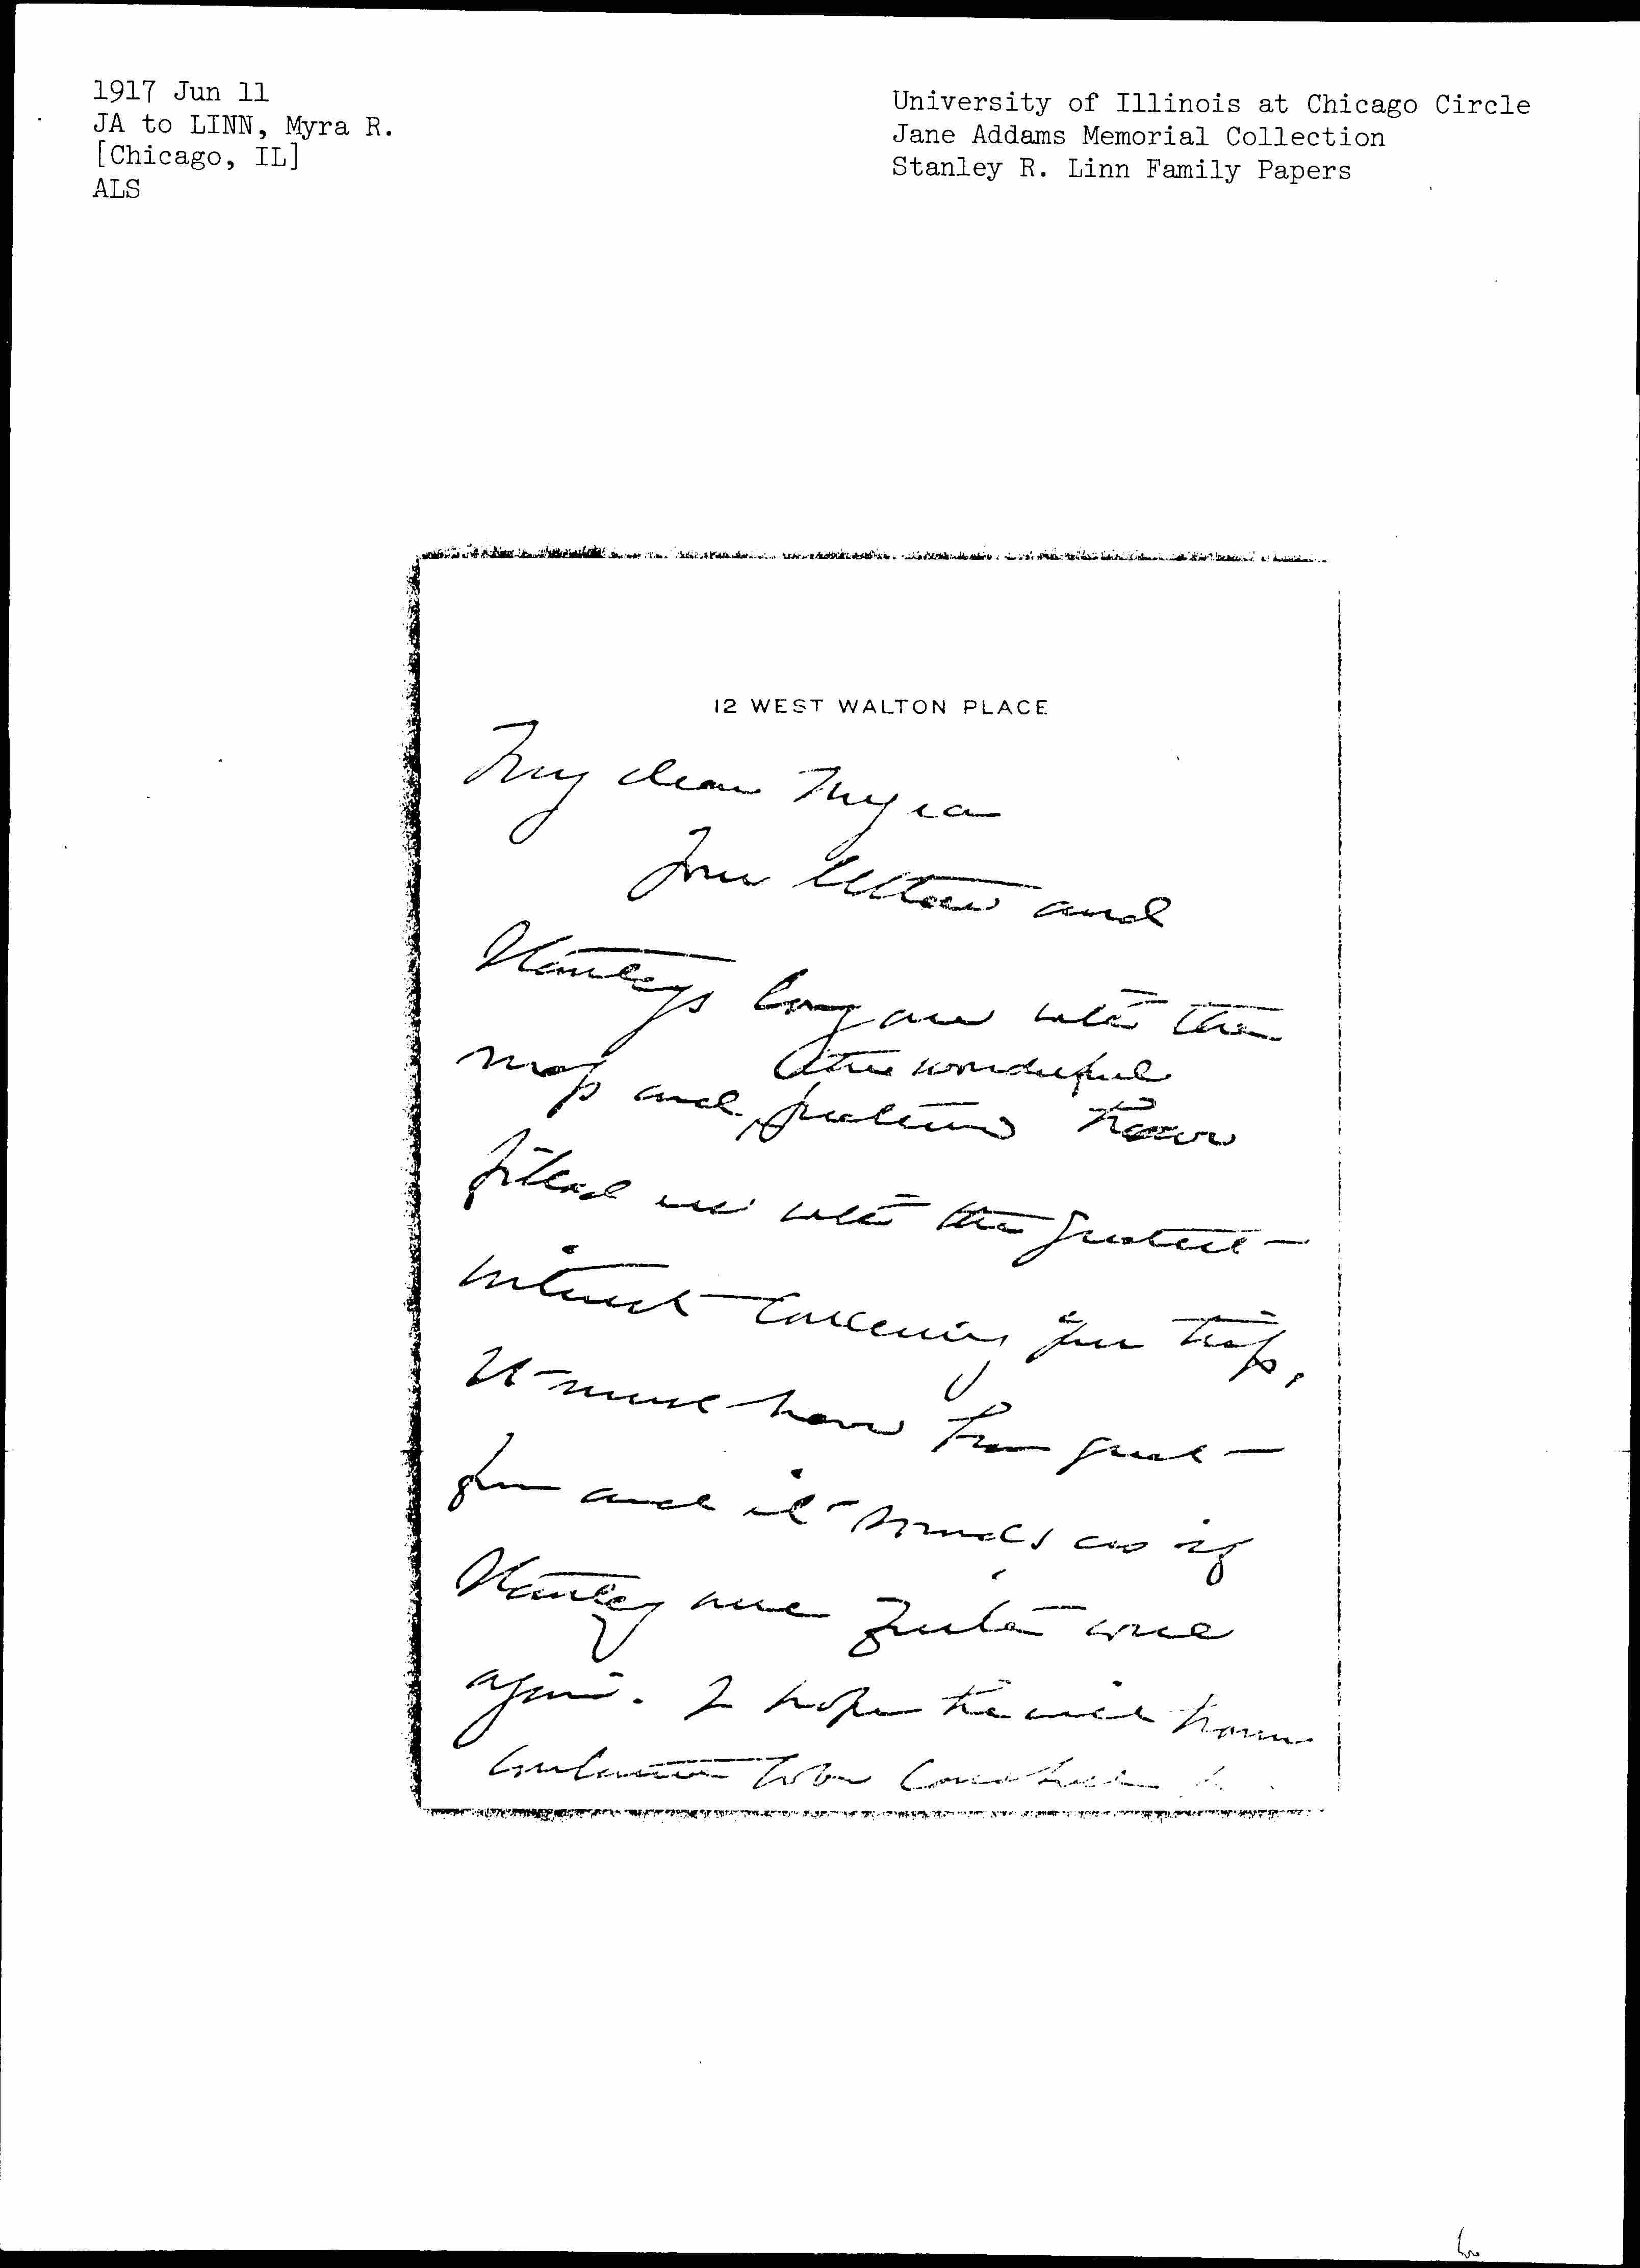 1917 Jun 11
JA to LINN, Myra R.
[Chicago, IL]
ALS
University of Illinois at Chicago Circle
Jane Addams Memorial Collection
Stanley R. Linn Family Papers
12 WEST WALTON PLACE
My dear Myra
Your letter and
Stanleys long one with the
map and the wonderful pictures have
filled me with the greatest
interest concerning your trip,
It must have been great
fun and it sounds as if
Stanley were quite well
again. I hope he will have